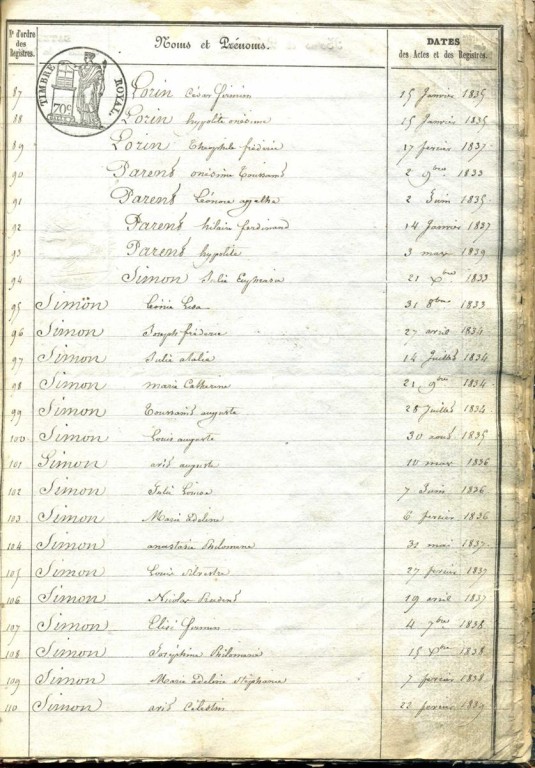 N° d'ordre des Registres.
Noms et Prénoms.
DATES
des Actes et des Registres.
TIMBRE ROYAL
70c
87 Lorin César firmin 15 Janvier 1835
88 Lorin hypolite onésime 15 Janvier 1835
89 Lorin Theophile fréderic 17 fevrier 1837
90 Parens onésime Toussains 2 9bre 1833
91 Parens Léonore agathe 2 Juin 1835
92 Parens hilaire ferdinand 14 Janvier 1837
93 Parens hypolite 3 mars 1839
94 Simon Julie 21 Xbre 1833
95 Simon Léonie Lisa 31 8bre 1833
96 Simon Joseph fréderic 27 avril 1834
97 Simon Julie 14 Juillet 1834
98 Simon marie Catherine 21 9bre 1834
99 Simon Toussains auguste 28 Juillet 1834
100 Simon Louis auguste 30 aous 1835
101 Simon aris auguste 10 mars 1836
102 Simon Julie Louisa 7 Juin 1836
103 Simon Marie adeline 6 fevrier 1836
104 Simon anastasie Philomene 31 mai 1837
105 Simon Louis silvestre 27 fevrier 1837
106 Simon Nicolas 19 avril 1837
107 Simon Elisé 4 7bre 1838
108 Simon Josephine Philomene 15 Xbre 1838
109 Simon Marie adeline stéphanie 7 fevrier 1838
110 Simon aris Célestin 23 fevrier 1839